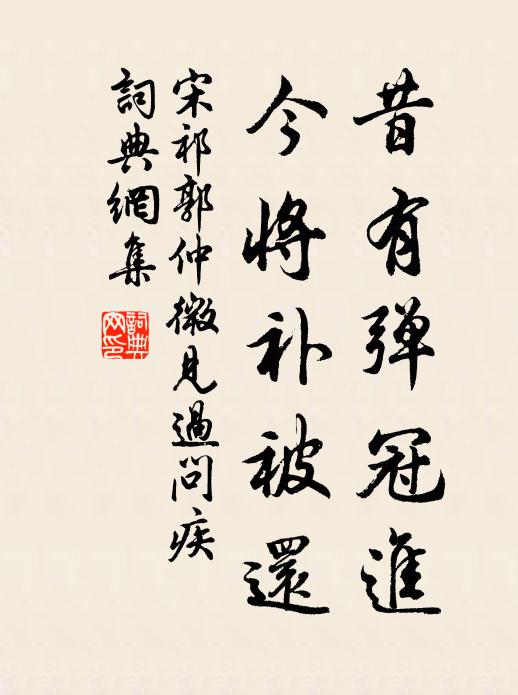 昔有弹冠進
今將补被還
宋祁郭仲微見過問疾
詞典網集
詞典網印